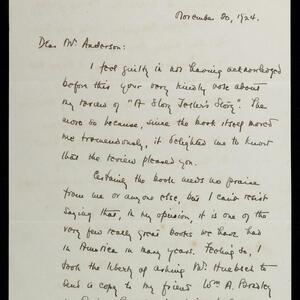 November 20, 1924.
Dear Mr Anderson:
I feel guilty in not having acknowledged
before this your very kindly note about
my review of "A Story Teller's Story". The
more so because, since the book itself moved
me tremendously, it delighted me to know
that the review pleased you.
Certainly the book needs no praise
from me or anyone else, but I can't resist
saying that, in my opinion, it is one of the
very few really great books we have had
in America in many years. Feeling so, I
took the liberty of asking Mr Huebsch to
send a copy to my friend Wm A.